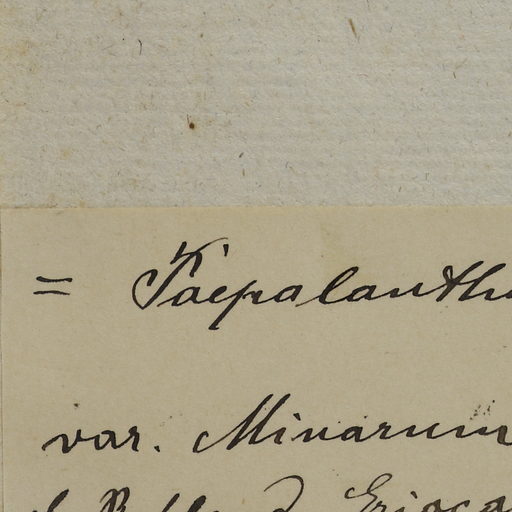 = Paepalanthu
var. Minarum
Erioca